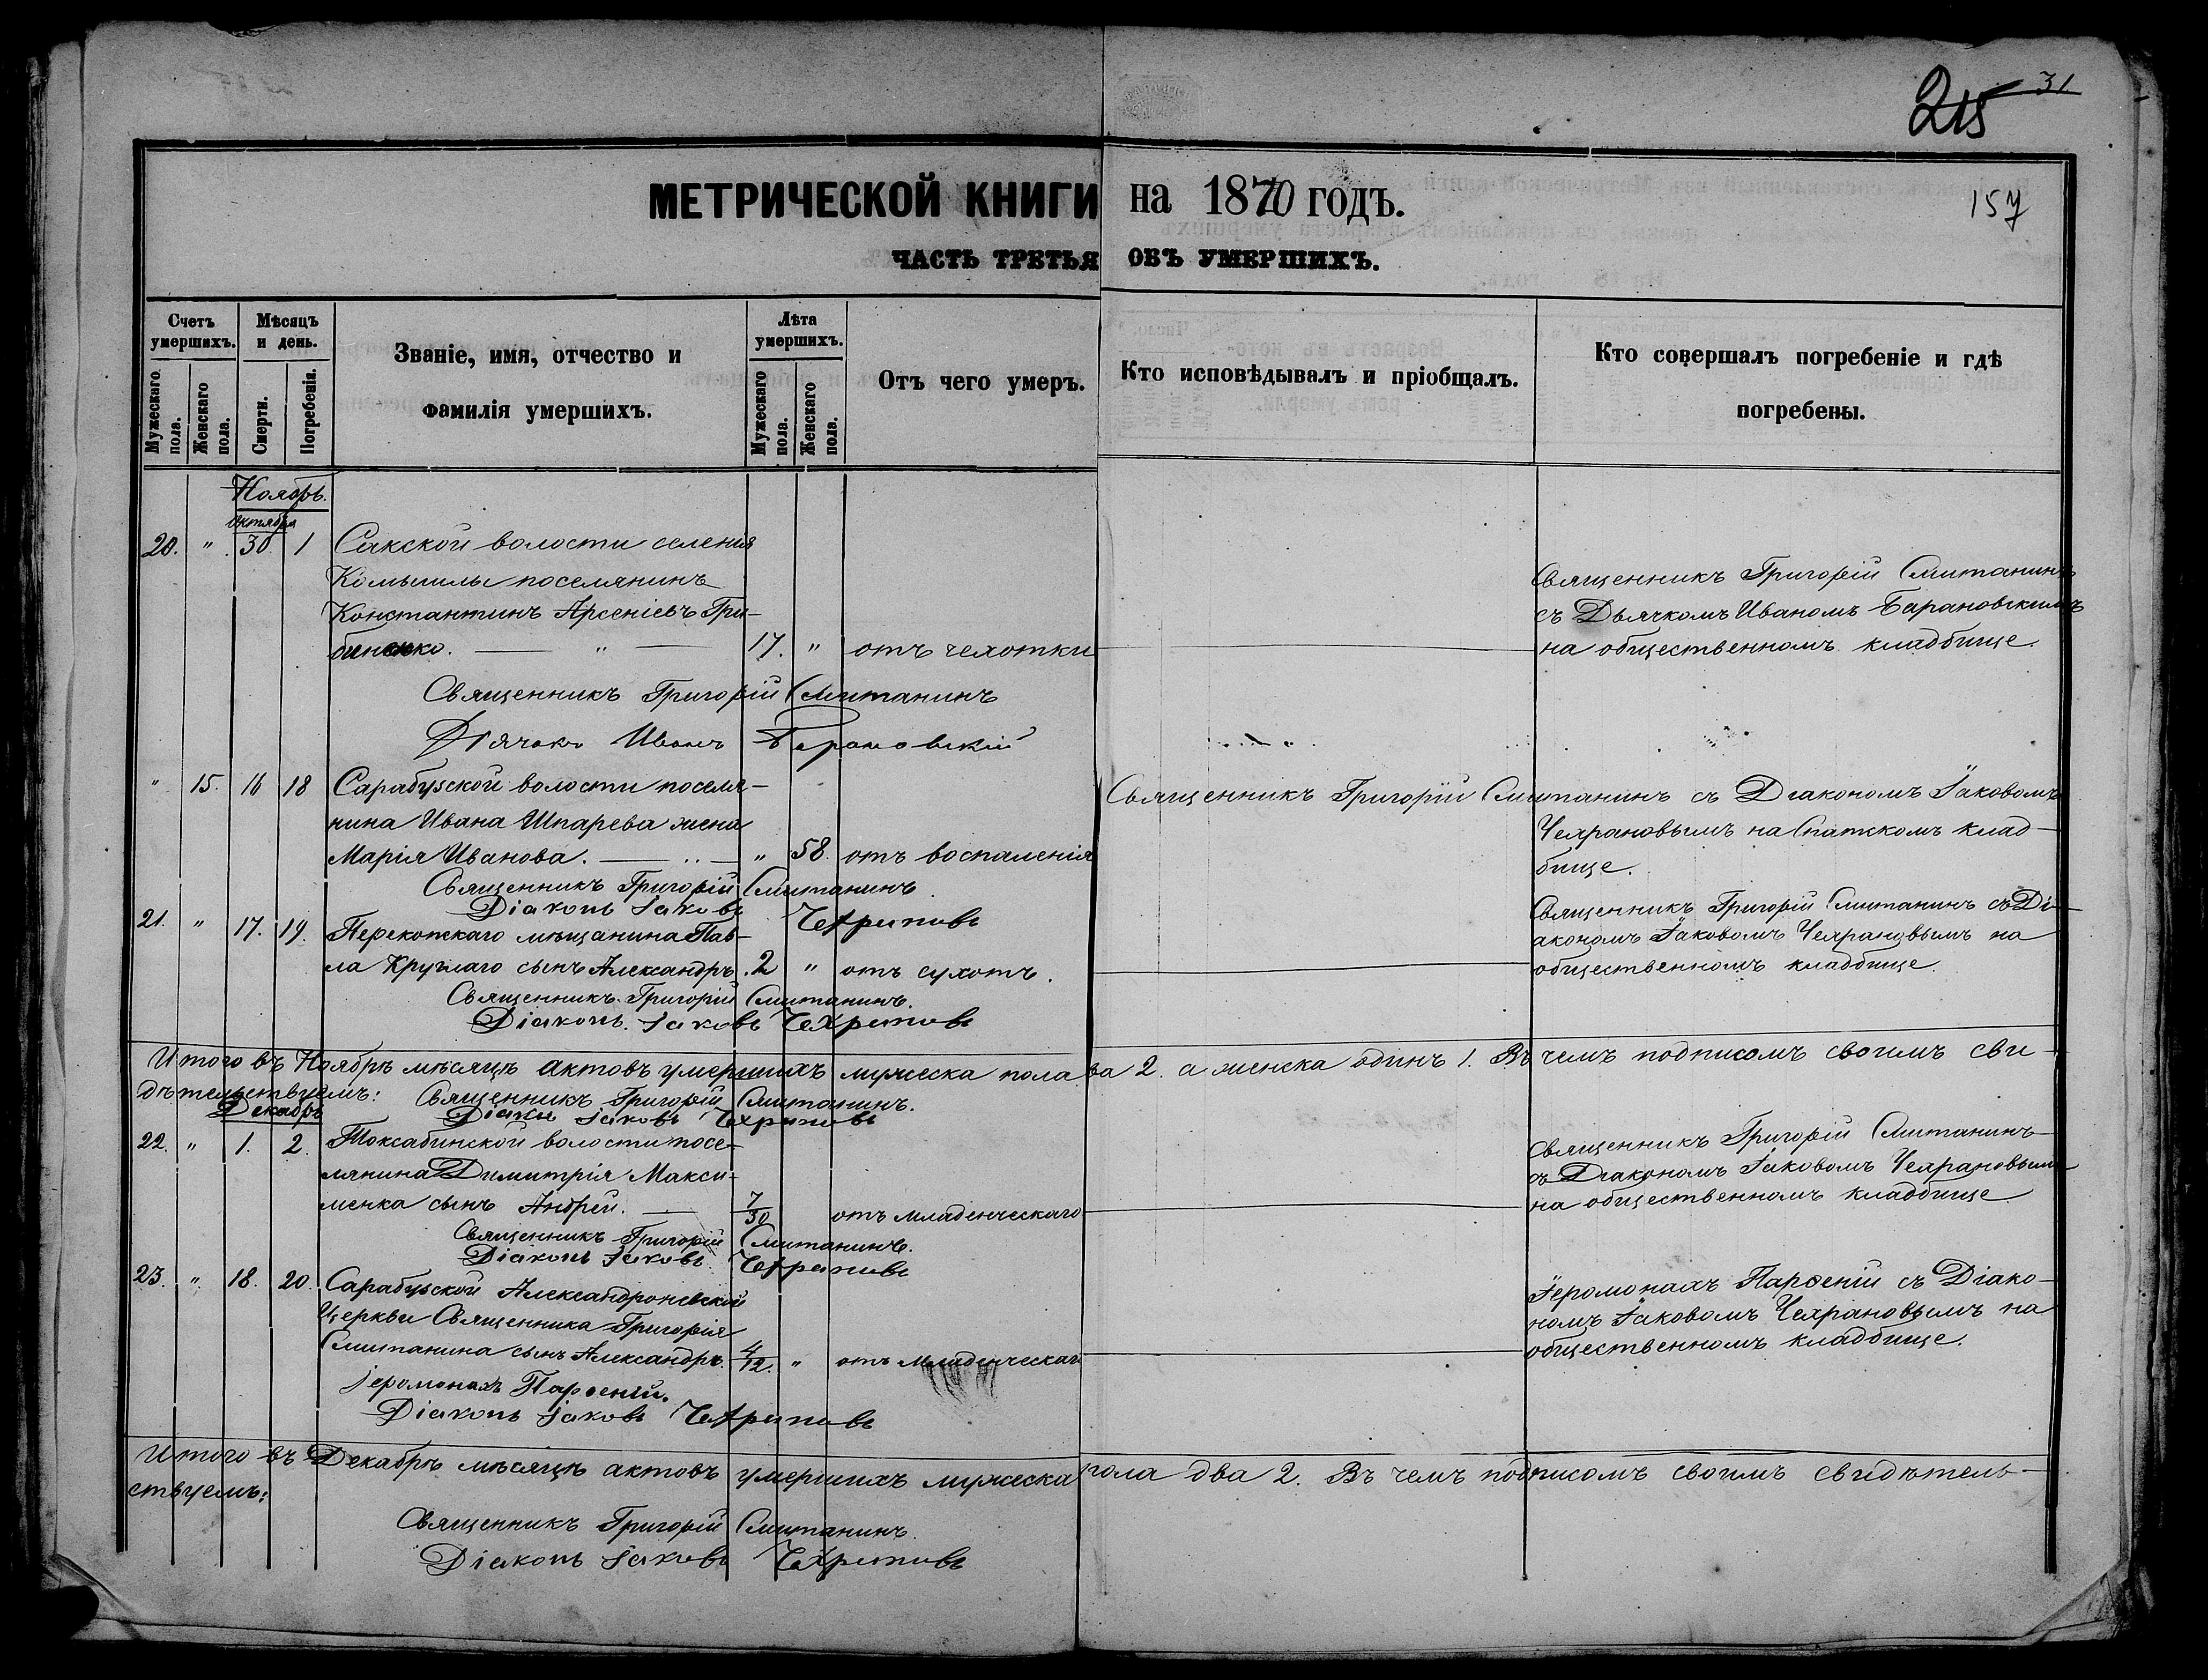 215 31
157
МЕТРИЧЕСКОЙ КНИГИ на 1870 годъ.
ЧАСТЬ ТРЕТЬЯ ОБЪ УМЕРШИХЪ.
Счетъ умершихъ.
Мужескаго пола.
Женскаго пола.
Мѣсяцъ и день.
Смерти.
Погребенія.
Званіе, имя, отчество и
фамилія умершихъ.
Лѣта умершихъ.
Мужескаго пола.
Женскаго пола.
Отъ чего умеръ.
Кто исповѣдывалъ и пріобщалъ.
Кто совершалъ погребеніе и гдѣ
погребены.
Ноябрь.
Октября
20. " 30 1 Сакской волости селенія
Комышлы поселянинъ
Константинъ Арсеніевъ Гри-
биненко. — " — 17. " отъ чехотки
Священникъ Григорій Смитанинъ
съ Дьячкомъ Иваномъ Барановскимъ
на общественномъ кладбище.
Священникъ Григорій Смитанинъ
Дьячокъ Иванъ Барановскій
" 15. 16 18 Сарабузской волости поселя-
нина Ивана Шпарева жена
Марія Иванова. — " 58. отъ воспаленія
Священникъ Григорій Смитанинъ съ Діакономъ Іаковомъ
Чехрановымъ на Спатскомъ клад-
бище.
Священникъ Григорій Смитанинъ
Діаконъ Іаковъ Чехрановъ
21. " 17. 19. Перекопскаго мѣщанина Пав-
ла Круглаго сынъ Александръ. 2 " отъ сухотъ.
Священникъ Григорій Смитанинъ съ Ді-
акономъ Іаковомъ Чехрановымъ на
общественномъ кладбище.
Священникъ Григорій Смитанинъ.
Діаконъ Іаковъ Чехрановъ
Итого въ Ноябрѣ мѣсяцѣ актовъ умершихъ мужеска пола два 2. а женска одинъ 1. Въ чемъ подписомъ своимъ сви-
дѣтельствуемъ: Священникъ Григорій Смитанинъ.
Діаконъ Іаковъ Чехрановъ
Декабрь
22. " 1. 2. Токсабинской волости посе-
лянина Димитрія Макси-
менка сынъ Андрей. — 7/30 отъ младенческаго
Священникъ Григорій Смитанинъ
съ Діакономъ Іаковомъ Чехрановымъ
на общественномъ кладбище
Священникъ Григорій Смитанинъ.
Діаконъ Іаковъ Чехрановъ
23. " 18. 20. Сарабузской Александроневской
Церкви Священника Григорія
Смитанина сынъ Александръ. 4/12. " отъ младенческаго
Іеромонахъ Парѳеній съ Діако-
номъ Іаковомъ Чехрановымъ на
общественномъ кладбище.
Іеромонахъ Парѳеній.
Діаконъ Іаковъ Чехрановъ
Итого въ Декабрѣ мѣсяцѣ актовъ умершихъ мужеска пола два 2. Въ чемъ подписомъ своимъ свидѣтель-
ствуемъ:
Священникъ Григорій Смитанинъ.
Діаконъ Іаковъ Чехрановъ